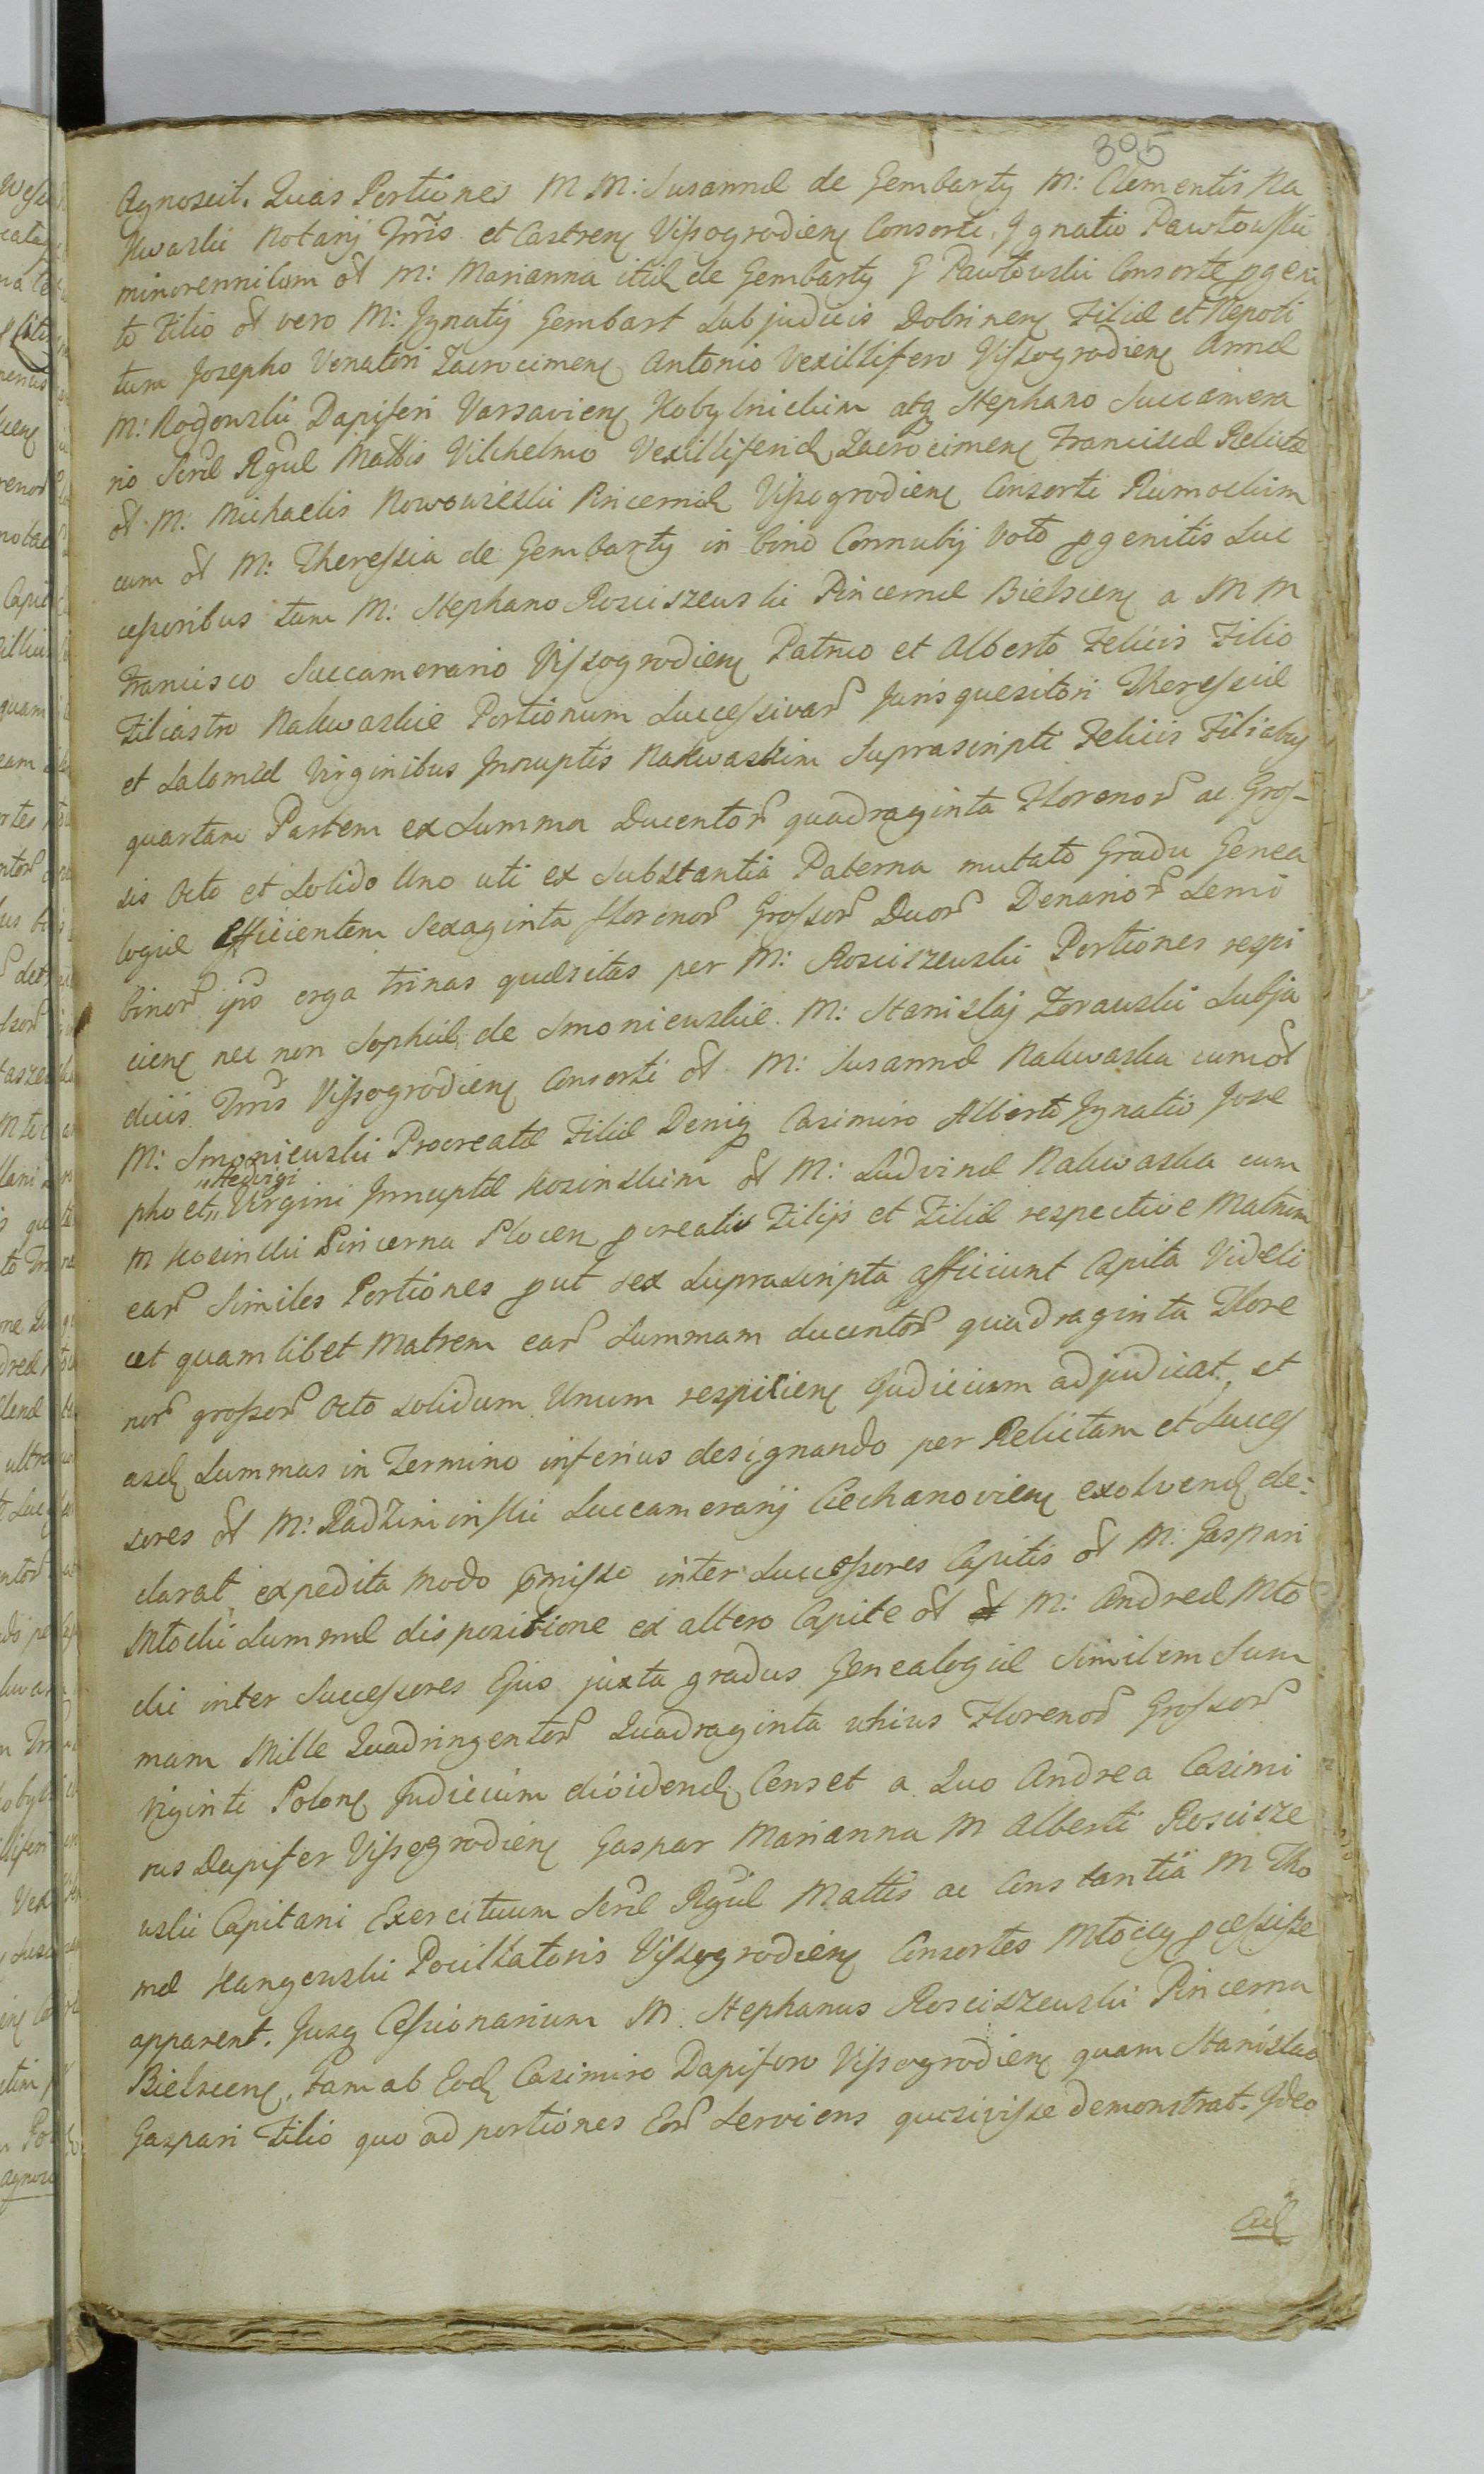 395
Agnoscit. Quas Portiones M M: Susannæ de Gembarty M: Clementis Na
kwaski Notarij Trris et Castren Vissogrodien Consorti, Ignatio Pawłowski
minorenni cum ol M: Marianna itid de Gembarty G Pawłowski Consorte pgeni
to Filio ol vero M: Ignatij Gembart Subjudicis Dobrinen Filiæ et Nepoti
tum Josepho Venatori Zacrocimen Antonio Vexillifero Vissogrodien Annæ
M: Rogowski Dapiferi Varsavien Kobylnickim atq Stephano Succamera
rio Sræ Rgiæ Mattis Vilhelmo Vexilliferid Zacrocimen Francisca Relicta
ol M. Michaelis Nowowieski Pincernæ Vissogrodien Consorti Rumockim
cum ol M: Theressia de Gembarty in bino Connubij Voto pgenitis Suc
cessoribus tum M: Stephano Rosciszewski Pincernæ Bielscien a M M
Francisco Succamerario Vissogrodien Patruo et Alberto Felicis Filio
Filiastro Nakwaskie Portionum Successivar Juris quesitori Theressiæ
et Salomeæ Virginibus Innuptis Nakwaskim Suprascripti Felicis Filiabus
quartam Partem ex Summa Ducentor quadraginta Florenor ac Gros-
sis Octo et Solido Uno uti ex Substantia Paterna mutato Gradu Genea
logiæ Efficientem Sexaginta florenor Grossor Duor Denarior Semi
binor ipso erga trinas quæsitas per M: Rosciszewski Portiones respi
cien nec non Sophiæ de Smoniewskie. M: Stanislaj Zorawski Subju
dicis Trris Vissogrodien Consorti ol M: Susannæ Nakwaska cum ol
M: Smoniewski Procreatæ Filiæ Deniq Casimiro Alberto Ignatio Jose
pho et "Hedvigi" Virgini Innuptæ Kosinskim ol M: Ludvinæ Nakwaska cum
M Kosinski Pincerna Plocen pcreatis Filijs et Filiæ respective Matrim
ear Similes Portiones put sex Suprascripta afficiunt Capita Videli
cet quamlibet Matrem ear Summam ducentor quadraginta Flore
nor grossor Octo solidum Unum respicien Judicium adjudicat, et
asd Summas in Termino inferius designando per Relictam et Succes
sores ol M: Radziminski Succamerarij Ciechanovien exolvend de:
clarat, expedita modo pmisso inter Successores Capitis ol M: Gaspari
Młocki Summæ dispositione ex altero Capite ol M: Andreæ Mło
cki inter Successores Ejus juxta gradus Genealogiæ Similem Sum
mam Mille Quadringentor Quadraginta unius Florenor Grossor
viginti Polon Judicium dividend Censet a Quo Andrea Casimi
rus Dapifer Vissogrodien Gaspar Marianna M Alberti Roscisze
wski Capitani Exercituum Sræ Rgiæ Mattis ac Constantia M Tho
mæ Kangowski Pocillatoris Vissogrodien Consortes Młockie pcessisse
apparent. Jusq Cessionarium M. Stephanus Rosciszewski Pincerna
Bielscien, tam ab Eod Casimiro Dapifero Vissogrodien quam Stanislao
Gaspari Filio quo ad portiones Eor Serviens quæsivisse demonstrat. Ideo
Eid